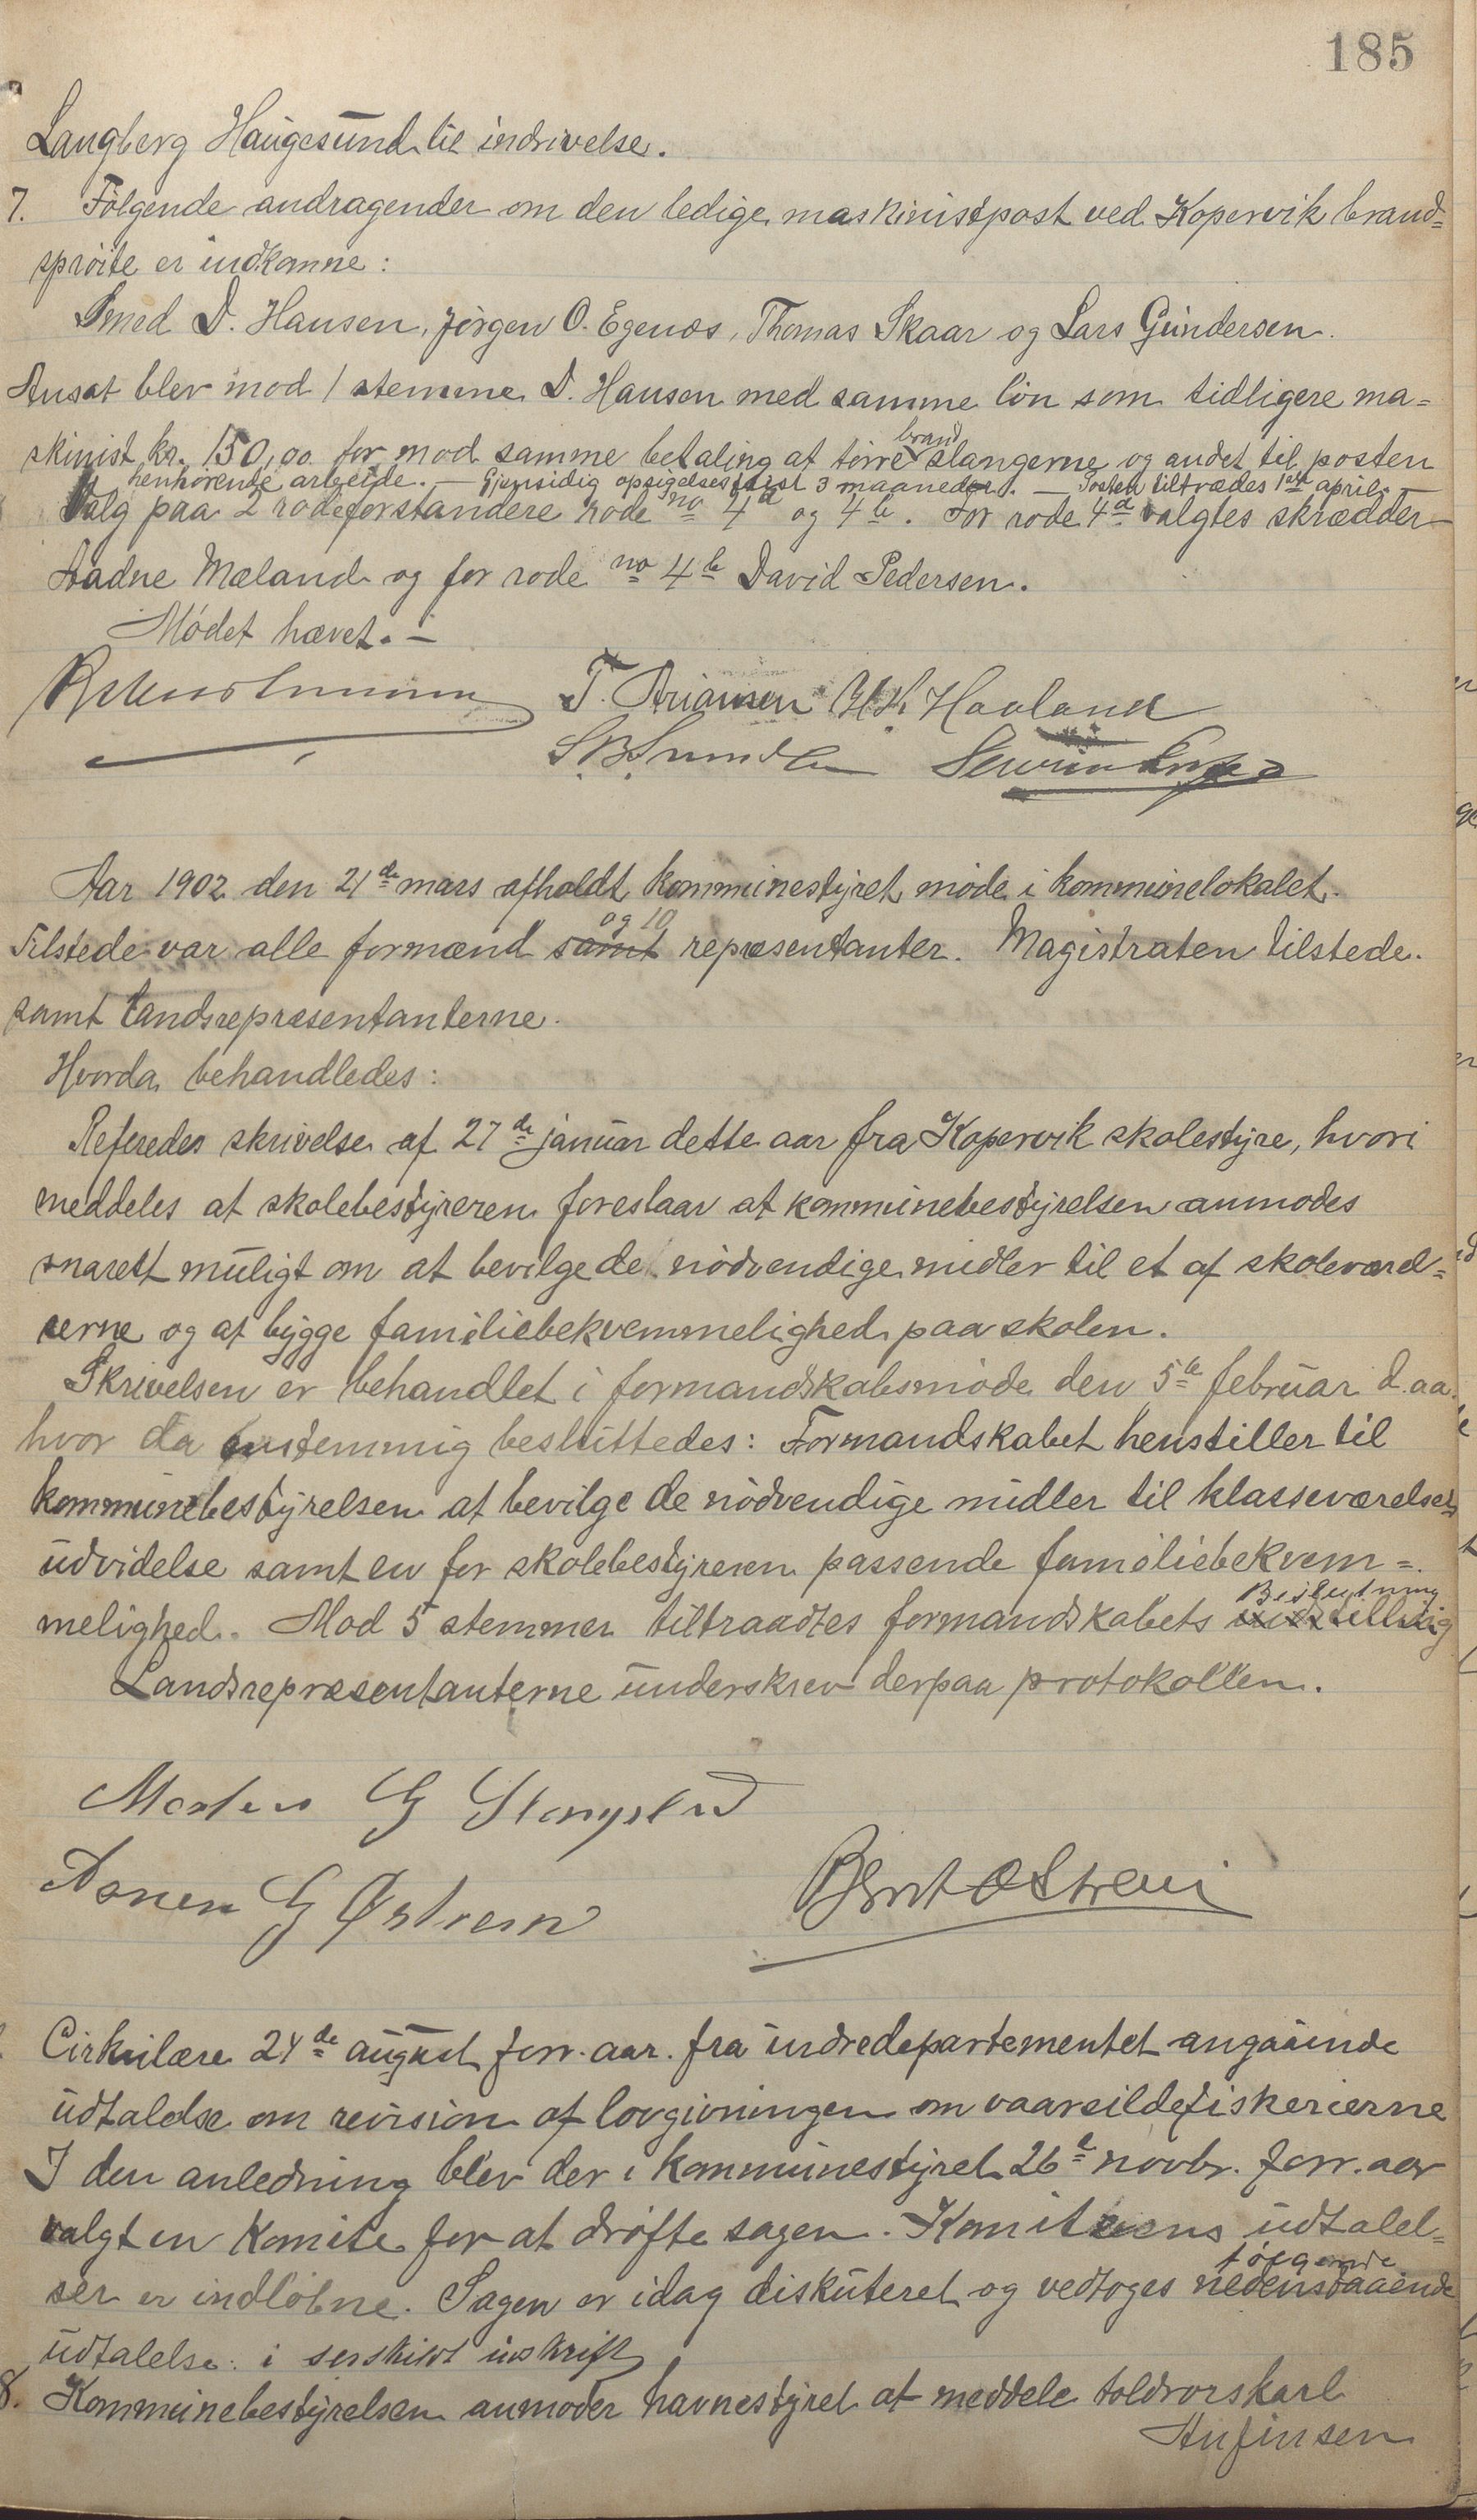 185
Langberg Haugesund til indrivelse.
7. Følgende andragender om den ledige maskinistpost ved Kopervik brand=
sprøite er indkomne:
Smed D. Hansen, Jørgen O. Egenæs, Thomas Skaar og Lars Gundersen.
Ansat blev mod 1 stemme D. Hansen med samme løn som tidligere ma=
skinist kr. 150,00 for mod samme betaling at tørre brand slangerne og andet til posten
henhørende arbeide. — Gjensidig opsigelsesfrist 3 maaneder. — Posten tiltrædes 1ste april. —
Valg paa 2 rodeforstandere rode no 4a og 4b. For rode 4a valgtes skrædder
Aadne Mæland og for rode no 4b David Pedersen.
Mødet hævet. —
T. Arianson H. H. Havland
S. B. Sundbø
Aar 1902 den 21de mars afholdt kommunestyret møde i kommunelokalet.
Tilstede var alle formænd samt og 10 repræsentanter. Magistraten tilstede.
samt Landsrepræsentanterne.
Hvorda behandledes:
Referedes skrivelse af 27de januar dette aar fra Kopervik skolestyre, hvori
meddeles at skolebestyreren foreslaar at kommunebestyrelsen anmodes
snarest muligt om at bevilge de nødvendige midler til et af skoleværel=
serne og at bygge familiebekvemmelighed paa skolen.
Skrivelsen er behandlet i formandskabsmøde den 5te februar d. aa.
hvor da enstemmig besluttedes: Formandskabet henstiller til
kommunebestyrelsen at bevilge de nødvendige midler til klasseværelsets
udvidelse samt en for skolebestyreren passende familiebekvem=
melighed. Mod 5 stemmer tiltraadtes formandskabets Beslutning
Landsrepræsentanterne underskrev derpaa protokollen.
Morten G
Asmen G Østrem
Bernt Østrem
Cirkulære 24de august forr. aar. fra indredepartementet angaaende
udtalelse om revision af lovgivningen om vaarsildefiskerierne
I den anledning blev der i kommunestyret 26de novbr. forr. aar
valgt en komite for at drøfte sagen. Komiteens udtalel=
ser er indløbne. Sagen er idag diskuteret og vedtoges nedenstaaende følgende
udtalelse: i serskildt inskrift
8. Kommunebestyrelsen anmoder havnestyret at meddele toldrorskarl
Anfinsen